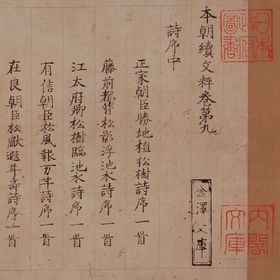 本朝續文粹卷第九
詩序中
正家朝臣勝地植松樹詩序一首
藤前都督松影浮池水詩序一首
江太府卿松樹臨池水詩序一首
有信朝臣松風報万年詩序一首
在良朝臣松獻遐年壽詩序一首
金澤文庫
日本
圖書
內閣
文庫